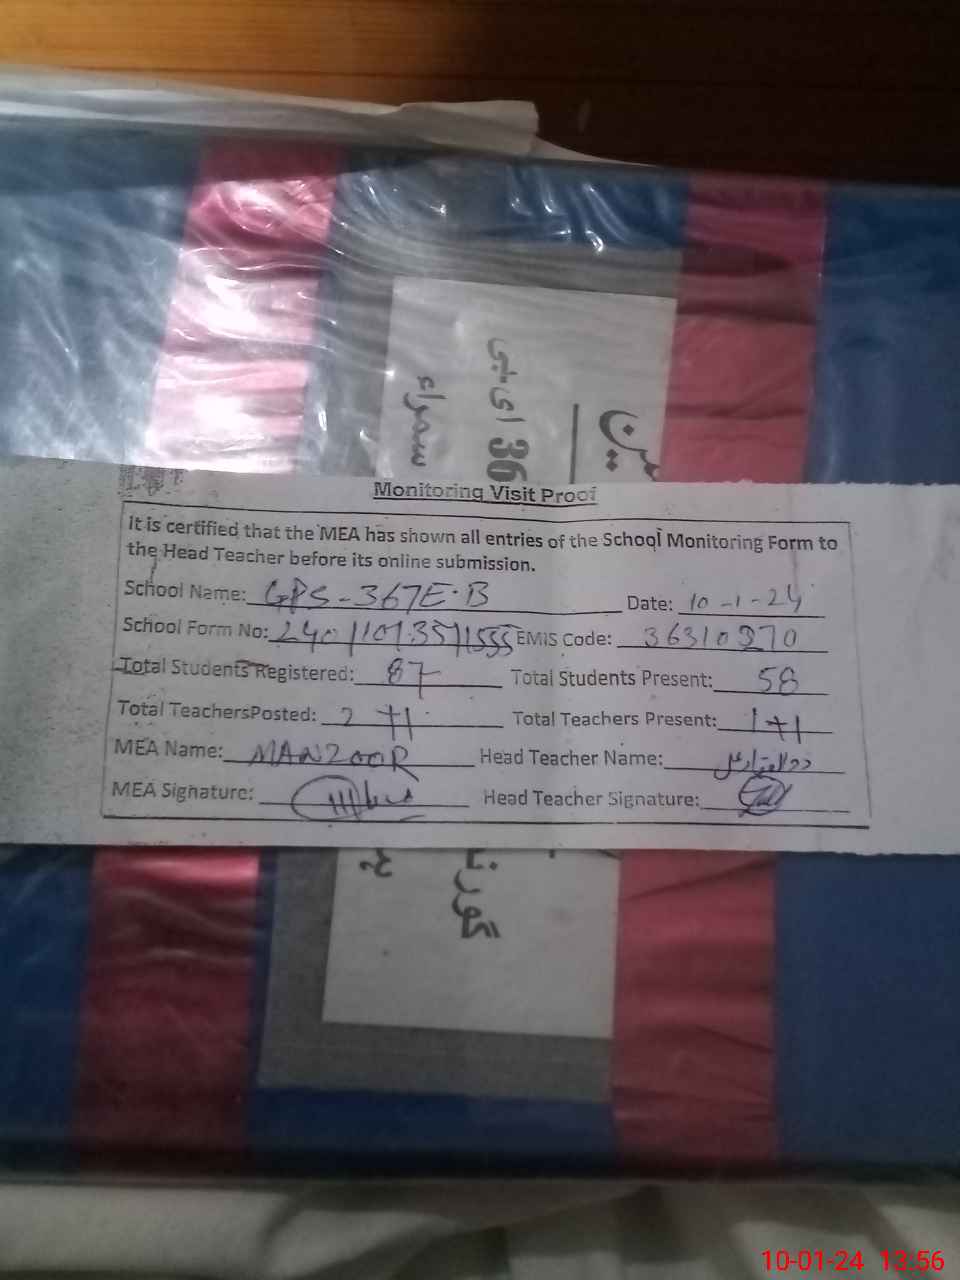 سمراء
36 ای-بی
Monitoring Visit Proof
It is certified that the MEA has shown all entries of the School Monitoring Form to
the Head Teacher before its online submission.
School Name: GPS-367E.B Date: 10-1-24
School Form No: EMIS Code: 36310370
Total Students Registered: 87 Total Students Present: 58
Total TeachersPosted: 2+1 Total Teachers Present: 1+1
MEA Name: MANZOOR Head Teacher Name:
MEA Signature: Head Teacher Signature:
10-01-24 13:56